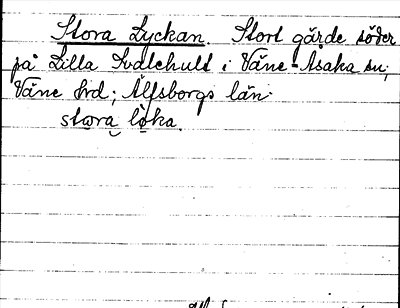 Stora Lyckan. Stort gärde söder
på Lilla Svaltehult i Väne-Åsaka sn,
Väne hrd; Älfsborgs län.
stora löka.